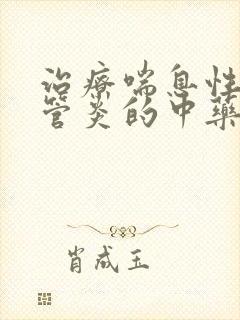 治療喘息性
管炎的中藥
肖成玉